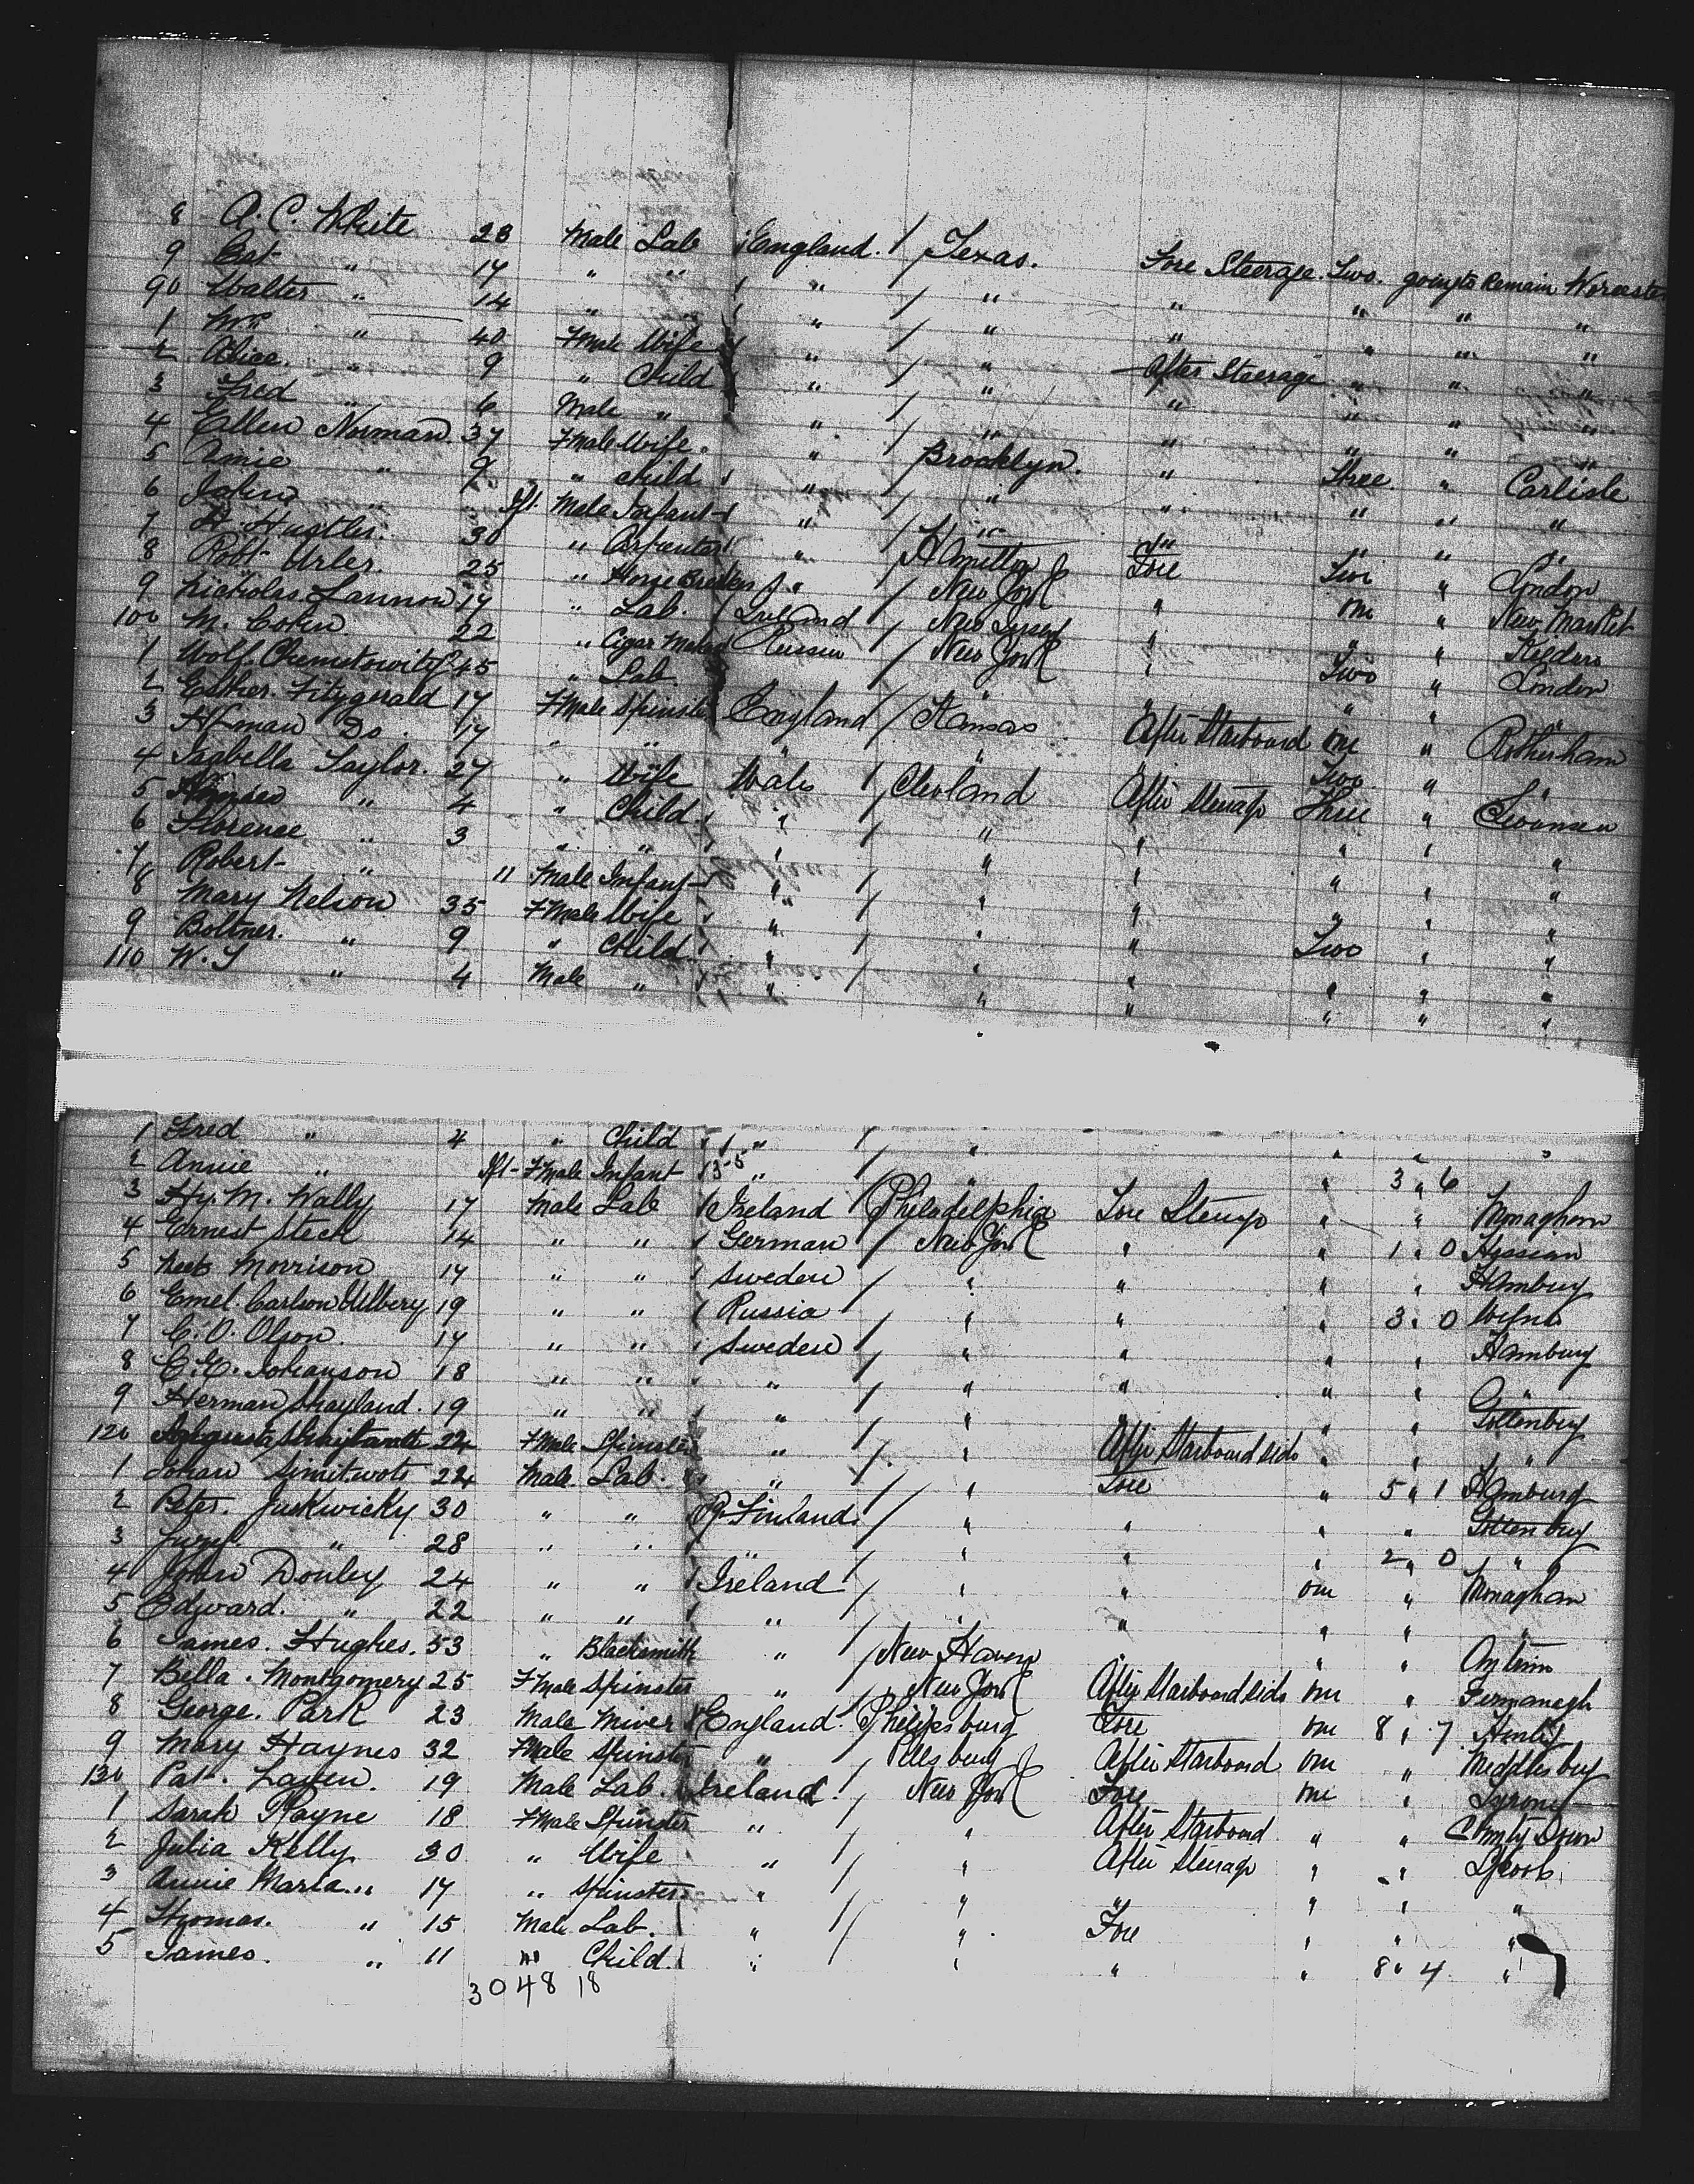 8 A. C. White 28 Male Lab England. / Texas. Fore Steerage. Two. going to Remain Worcester
9 " 17 " " " / " " " " "
90 Walter " 14 " " " / " " " " "
1 Mrs " 40 F Male Wife " / " After Steerage " " "
2 Alice. " 9 " Child " / " " " " "
3 Fred " 6 Male " " / " " " " "
4 Ellen Norman 37 F Male Wife. " / Brooklyn. " Three " Carlisle
5 Annie " 9 " child " / " " " " "
6 John " Ift. Male Infant " / " " " " "
7 H. Hustler. 30 " Carpenter " / Hamilton Fore Two " London
8 Robt Urler. 25 " Horse Breaker " / New York " one " New Market
9 Nicholas Lannon 17 " Lab. Ireland / New Jersey " " "
100 M. Cohen 22 " Cigar Maker Russia / New York " Two " London
1 Wolf. 45 " Lab. " " " " " "
2 Esther. Fitzgerald 17 F Male Spinster England / Kansas After Starboard one " Rotherham
3 Do. 17 " " " " " Two " "
4 Isabella Taylor. 27 " Wife Wales / Cleveland After Steerage Three " Swansea
5 " 4 " Child " / " " " " "
6 Florence " 3 " " " / " " " " "
7 Robert " 11 Male Infant " / " " " " "
8 Mary Nelson 35 F Male Wife " / " " Two " "
9 " 9 " Child " / " " " " "
110 W. S " 4 Male " " / " " " " "
1 Fred " 4 " Child " / " " " "
2 Annie " Ift- F Male Infant 13-5 " / " " 3 " 6
3 Hy. M. Wally 17 Male Lab Ireland / Philadelphia Fore Steerage " " Monaghan
4 Ernest Steck 14 " " German / New York " " 1 " 0 Hessian
5 Morrison 17 " " Sweden / " " " " Hamburg
6 Emel. Carlson 19 " " Russia / " " " 3 " 0
7 C. O. Olson 17 " " Sweden / " " " " Hamburg
8 C. E. Johanson 18 " " " / " " " " Gottenburg
9 Herman 19 " " " / " " " " "
120 Augusta 24 F Male Spinster " / " After Starboard side " " "
1 Johan 22 Male. Lab. " / " Fore " 5 " 1 Hamburg
2 Peter. Juskwicky 30 " " R. Finland. / " " " " Gottenburg
3 " 28 " " " " " " 2 " 0 "
4 John Donley 24 " " Ireland / " " one " Monaghan
5 Edward. " 22 " " " / " " " " "
6 James. Hughes. 53 " Blacksmith " / New Haven " " " Antrim
7 Bella. Montgomery 25 F Male Spinster " / New York After Starboard side one " Fermanagh
8 George. Park 23 Male Miner England. / Philipsburg Fore one 8 " 7
9 Mary Haynes 32 F Male Spinster " After Starboard one " Middlesbury
130 Pat. Laven. 19 Male Lab. Ireland. / New York Fore one " Tyrone
1 Sarah Rayne 18 F Male Spinster " / " After Starboard " " County Down
2 Julia Kelly 30 " Wife " / " After Steerage " "
3 Annie Maria " 17 " Spinster " / " " " " "
4 Thomas. " 15 Male Lab. " / " Fore " " "
5 James. " 11 " Child. " " " " 8 " 4 "
30 48 18